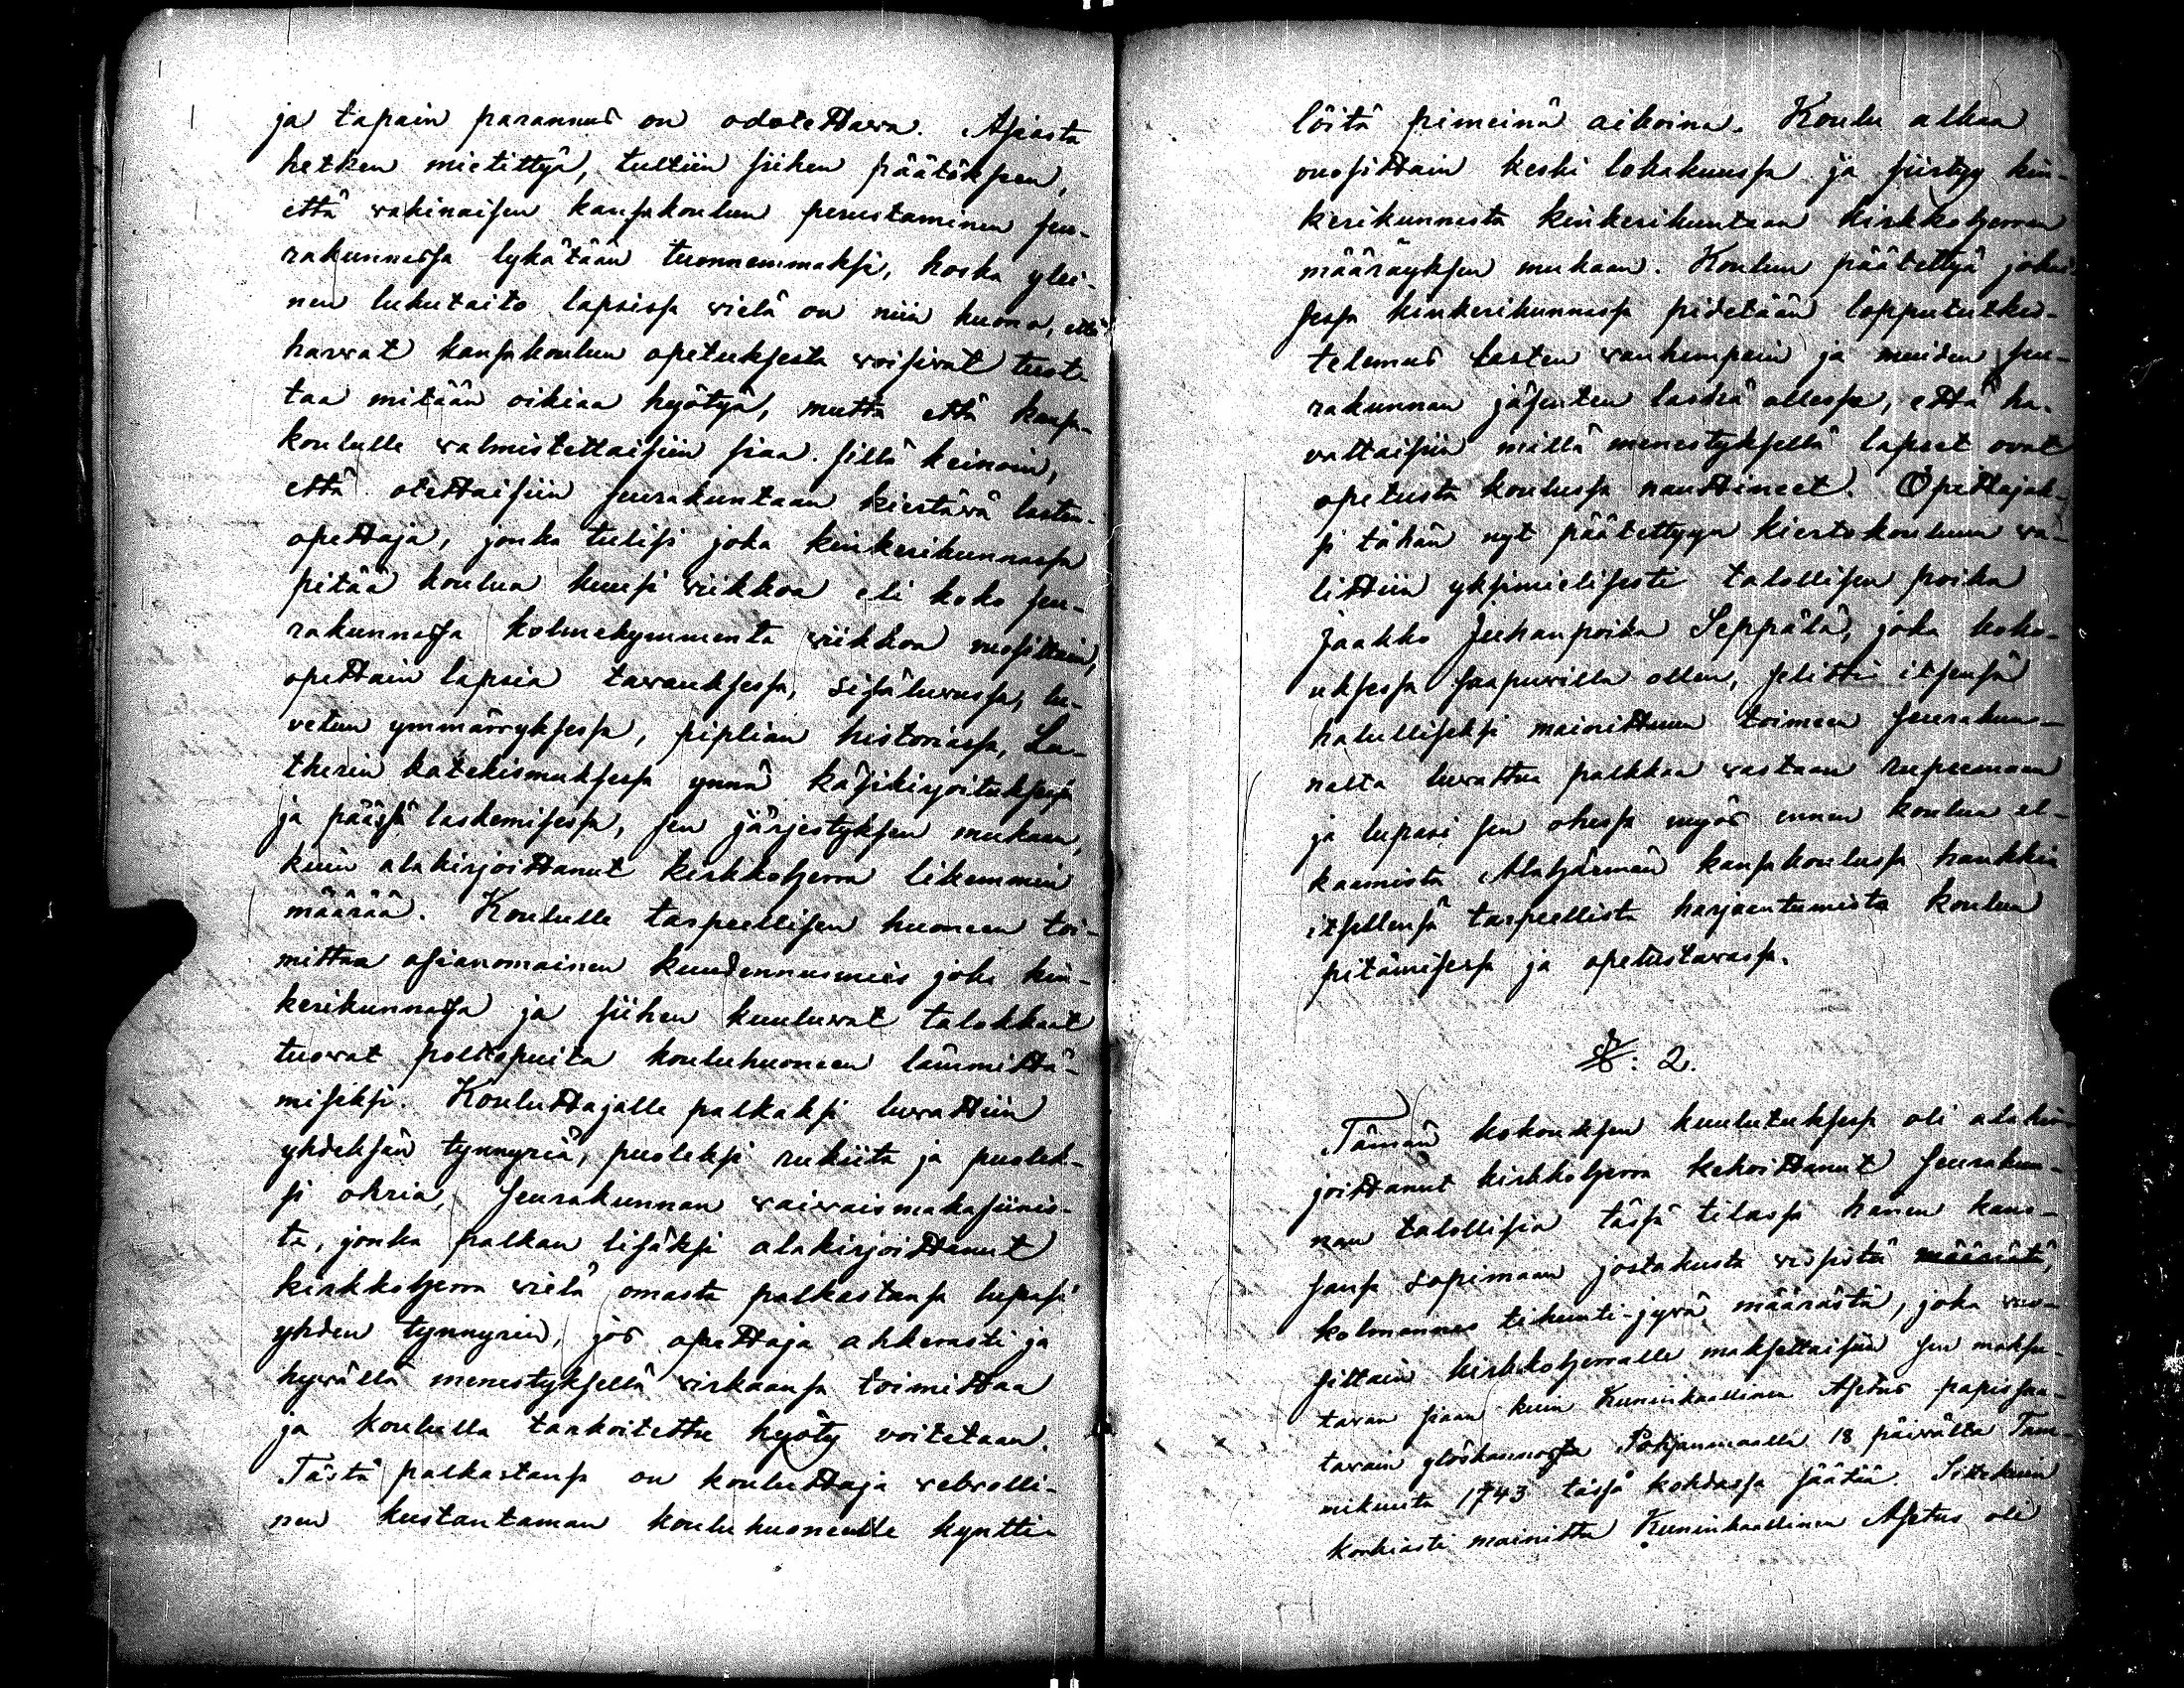 ja tapain parannus on odotettava. Asiasta
hetken mietittyä, tultiin siihen päätökseen,
että vakinaisen kansakoulun perustaminen seu-
rakunnassa lykätään tuonnemmaksi, koska ylei-
nen lukutaito lapsissa vielä on niin huono, että
harvat kansakoulun opetuksesta voisivat tuot-
taa mitään oikiaa hyötyä, mutta että kansa-
koululle valmistettaisiin siaa sillä keinoin,
että otettaisiin seurakuntaan kiertävä lasten-
opettaja, jonka tulisi joka kinkerikunnassa
pitää koulua kuusi viikkoa eli koko seu-
rakunnassa kolmekymmentä viikkoa vuosittain,
opettain lapsia tavauksessa, sisäluvussa, lu-
vetun ymmärryksessä, piplian historiassa, Lu-
therin katekismuksessa ynnä käsikirjoituksessa
ja päässä laskemisessa, sen järjestyksen mukaan,
kuin alakirjoittanut kirkkoherra likemmin
määrää. Koululle tarpeellisen huoneen toi-
mittaa asianomainen kuudennusmies joka kin-
kerikunnassa ja siihen kuuluvat talokkaat
tuovat polttopuita kouluhuoneen lämmittä-
miseksi. Kouluttajalle palkaksi luvattiin
yhdeksän tynnyriä, puoleksi rukiita ja puolek-
si ohria, seurakunnan vaivaismakasiinis-
ta, jonka palkan lisäksi alakirjoittanut
kirkkoherra vielä omasta palkastansa lupasi
yhden tynnyrin, jos opettaja ahkerasti ja
hyvällä menestyksellä virkaansa toimittaa
ja koululla tarkoitettu hyöty voitetaan.
Tästä palkastansa on kouluttaja velvolli-
nen kustantaman kouluhuoneelle kyntti-
löitä pimeinä aikoina. Koulu alkaa
vuosittain keski lokakuussa ja siirtyy kin-
kerikunnasta kinkerikuntaan kirkkoherran
määräyksen mukaan. Koulun päätettyä joka
sessa kinkerikunnassa pidetään loppututkis-
telemus lasten vanhempain ja muiden seu-
rakunnan jäsenten läsnä ollessa, että ha-
vattaisiin millä menestyksellä lapset ovat
opetusta koulussa nauttineet. Opettajak-
si tähän nyt päätettyyn kiertokouluun va-
littiin yksimielisesti talollisen poika
Jaakko Juhanpoika Seppälä, joka koko-
uksessa saapuvilla ollen, selitti itsensä
halulliseksi mainittuun toimeen seurakun-
nalta luvattua palkkaa vastaan rupeemaan
ja lupasi sen ohessa myös ennen koulun al-
kaamista Alahärmän kansakoulussa hankkia
itsellensä tarpeellista harjaantumista koulun
pitämisessä ja opetustavassa.
§: 2.
Tämän kokouksen kuulutuksessa oli alakir-
joittanut kirkkoherra kehoittanut seurakun-
nan talollisia tässä tilassa hänen kans-
sansa sopimaan jostakusta vissistä määrästä,
kolmannes tihunti-jyvä määrästä, joka vuo-
sittain kirkkoherralle maksettaisiin sen maksu-
tavan siaan kuin Kuninkaallinen Asetus papissaa-
tavain ylöskannosta Pohjanmaalla 18 päivältä Tam-
mikuuta 1743 tässä kohdassa säätää. Sittekuin
korkiasti mainittu Kuninkaallinen Asetus oli